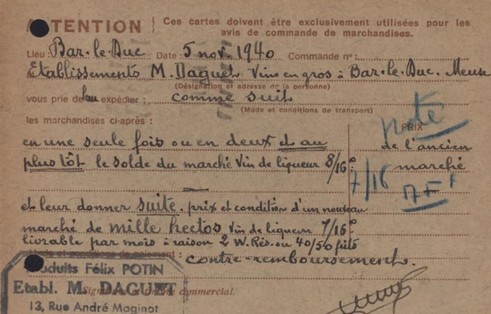 ATTENTION Ces cartes doivent être exclusivement utilisées pour les
avis de commande de marchandises.
Lieu : Bar-le-Duc Date : 5 nov. 1940 Commande n° :
Etablissements M. Daguet Vins en gros à Bar-le-Duc. Meuse
(Désignation et adresse de la personne)
vous prie de expédier : comme suit
(Mode et conditions de transport)
les marchandises ci-après :
note
PRIX
en une seule fois ou en deux et au
de l'ancien
plus tôt le solde du marché vin de liqueur 8/16°
marché
7/16
et leur donner suite. prix et condition d'un nouveau
marché de mille hectos vin de liqueur 7/16°
livrable par mois à raison 2 W. Rés. ou 40/50 fûts
Mode et conditions de paiement : contre-remboursement.
Produits Félix POTIN
Etabl. M. DAGUET
commercial.
13, Rue André Maginot